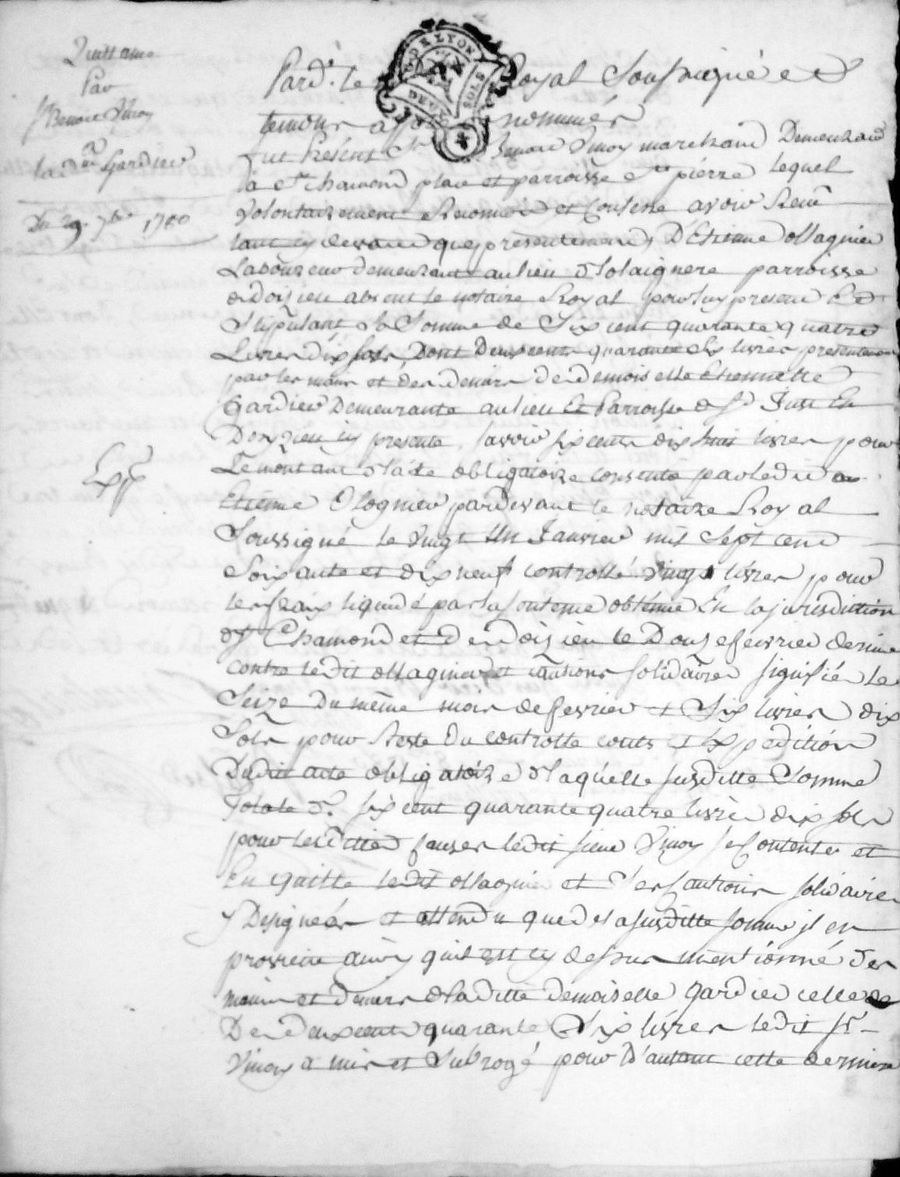 Quittance
Par
Sr Benoit Vinoy
la Dlle Gardier
Du 29 7bre 1780
DE LYON
DEUX SOLS
Pard.t le Royal Soussigné et
temoins nommés
fut Present Sr Benoit Vinoy marchand Demeurand
à St chamond place et parroisse St pierre Lequel
volontairement Reconnoit et Confesse avoir Receu
tant cy devant que presentement D'Etienne ollagnier
Laboureur demeurant au lieu parroisse
de doisieu absent le notaire Royal pour luy present et
stipulant la Somme de Six cent quarante quatre
Livres dix sols, Dont Deux cents quarante Six livres presentement
par les mains et des deniers de demoiselle Etiennette
Gardier Demeurante au lieu et Parroisse de St Just En
Doizieu cy presente, savoir Six cents dix huit livres pour
Le montant d'acte obligatoire consenti par ledit
Etienne Olognier pardevant le notaire Royal
Soussigné le vingt un Janvier mil Sept cent
Soixante et dix neuf controllé vingt livres pour
les fraix liquidé par la sentence obtenue En la jurisdiction
de St Chamond et de doisieu le Douze fevrier dernier
contre ledit ollagnier et cautions solidaires signifiée le
Seize du même mois de fevrier et Six livres dix
Sols pour Reste du controlle couts et Expedition
Dudit acte obligatoire de laquelle susditte Somme
Totale de six cent quarante quatre livres dix sols
pour lesdittes causes ledit sieur Vinoy se Contente et
En quitte ledit ollagnier et Ses cautions solidaires
y Designées et attendu que de la susditte somme il en
provient ainsy quil est cy dessus mentionné des
mains et deniers de laditte demoiselle Gardier celle de
De deux cent quarante Six livres ledit Sr
Vinoy a mis et Subrogé pour d'autant cette derniere